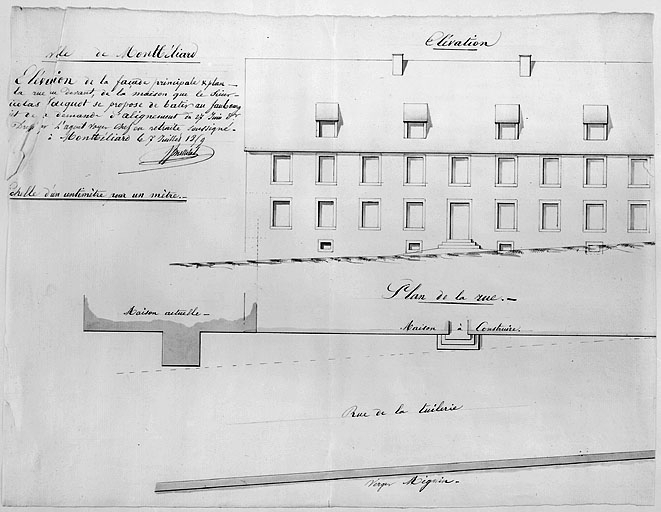 ville de Montbéliard
Elévation
Elévation de la façade principale & plan
la rue au devant, de la maison que le Sieur
Jacquot se propose de batir au faubourg
demande d'alignement du 27 Juin
L'agent voyer chef en retraite soussigné
à Montbéliard le 7 Juillet
Echelle d'un centimètre pour un mètre.
Plan de la rue.
Maison actuelle
Maison à Construire.
Rue de la tuilerie
Verger Méquin.